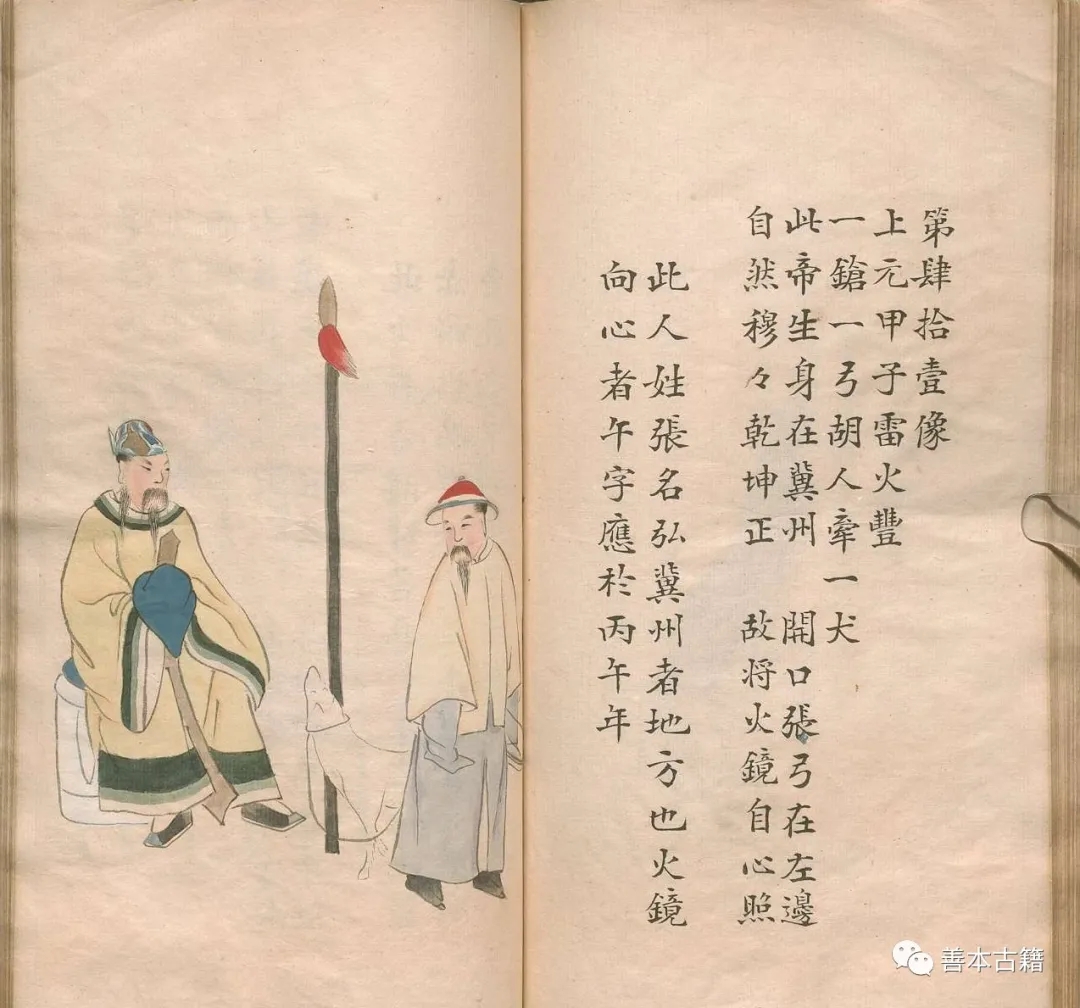 第肆拾壹像
上元甲子雷火豐
一鎗一弓胡人牽一犬
此帝生身在冀州　開口張弓在左邊
自然穆々乾坤正　故将火鏡自心照
此人姓張名弘冀州者地方也火鏡
向心者午字應於丙午年
善本古籍